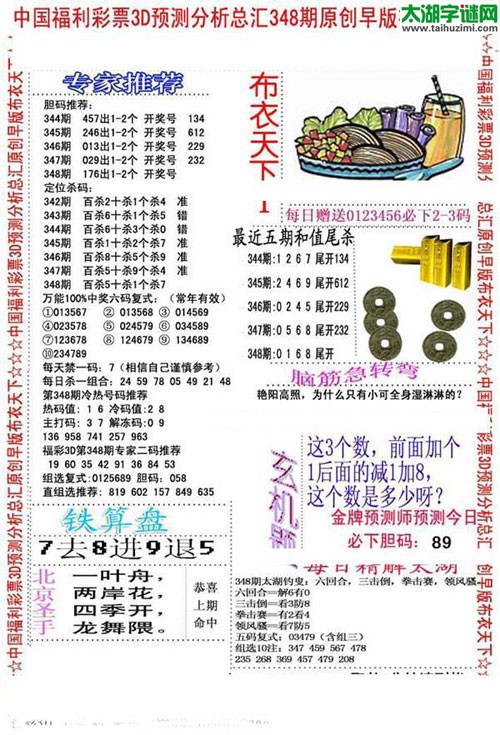 中国福利彩票3D预测分析总汇348期原创早版
太湖字谜网
www.taihuzimi.com
☆☆中国福利彩票3D预测分析总汇原创早版布衣天下☆☆☆中国福利彩票3D预测分析总汇原创早版布衣天下☆☆
专家推荐
胆码推荐:
344期 457出1-2个 开奖号 134
345期 246出1-2个 开奖号 612
346期 013出1-2个 开奖号 229
347期 029出1-2个 开奖号 232
348期 176出1-2个 开奖号
定位杀码:
342期 百杀2十杀1个杀4 准
343期 百杀6十杀1个杀5 错
344期 百杀6十杀3个杀0 错
345期 百杀1十杀9个杀7 准
346期 百杀7十杀6个杀1 准
347期 百杀5十杀9个杀4 准
348期 百杀5十杀1个杀7
万能100%中奖六码复式: (常年有效)
①013567 ②013568 ③014569
④023578 ⑤024579 ⑥034589
⑦123678 ⑧124679 ⑨134689
⑩234789
每天禁一码: 7 (相信自己谨慎参考)
每日杀一组合: 24 59 78 05 49 21 48
第348期冷热号码推荐
热码值: 1 6 冷码值: 2 8
主打码: 3 7 解冻码: 0 9
136 958 741 257 963
福彩3D第348期专家二码推荐
19 60 35 42 91 36 84 53
组选复式: 0125689 胆码: 058
直组选推荐: 819 602 157 849 635
铁算盘
7去8进9退5
北京圣手
一叶舟,
两岸花,
四季开,
龙舞隈。
恭喜
上期
命中
布衣天下
每日赠送0123456必下2-3码
最近五期和值尾杀
344期:1 2 6 7 尾开134
345期:2 4 6 9 尾开612
346期:0 2 4 5 尾开229
347期:0 5 6 8 尾开232
348期:0 1 6 8 尾开
脑筋急转弯
艳阳高照, 为什么只有小可全身湿淋淋的?
玄机
这3个数, 前面加个
1后面的减1加8,
这个数是多少呀?
金牌预测师预测今日
必下胆码: 89
每日精解太湖
348期太湖钓叟: 六回合, 三击倒, 拳击赛, 领风骚
六回合=解6有0
三击倒=看3防8
拳击赛=有2看4
领风骚=看7防5
五码复式: 03479 (含组三)
组选10注: 347 459 567 478
235 268 369 457 479 208